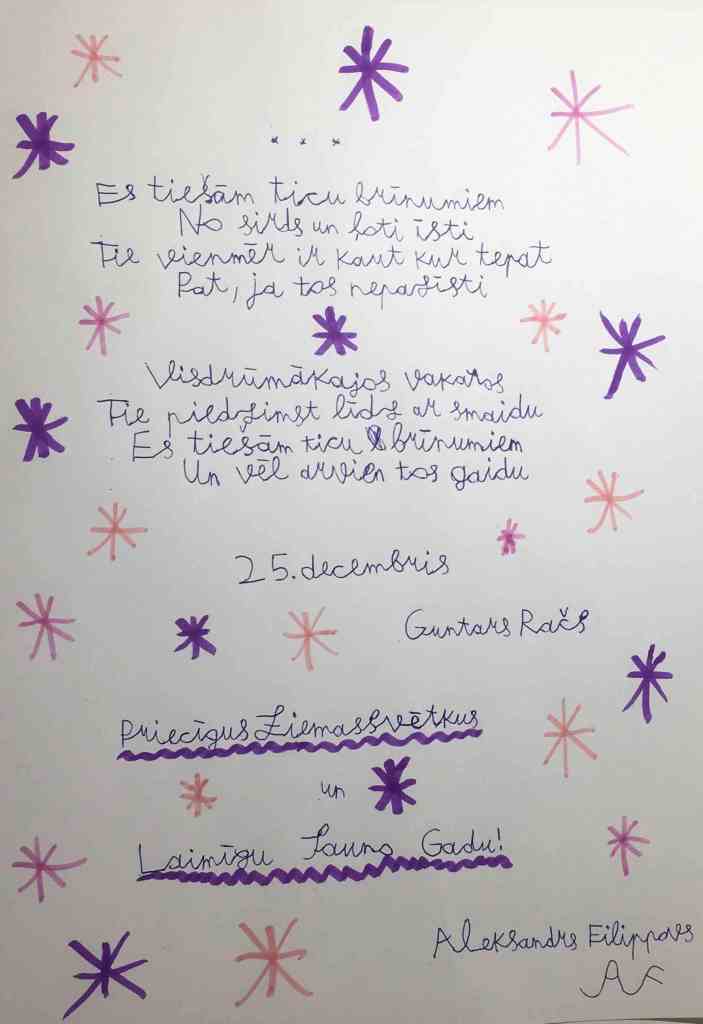 * * *
Es tiešām ticu brīnumiem
No sirds un ļoti īsti
Tie vienmēr ir kaut kur tepat
Pat, ja tos nepazīsti
Visdrūmākajos vakaros
Tie piedzimst līdz ar smaidu
Es tiešām ticu brīnumiem
Un vēl arvien tos gaidu
25. decembris
Guntars Račs
Priecīgus Ziemassvētkus
un
Laimīgu Jauno Gadu!
Aleksandrs Filippovs
AF